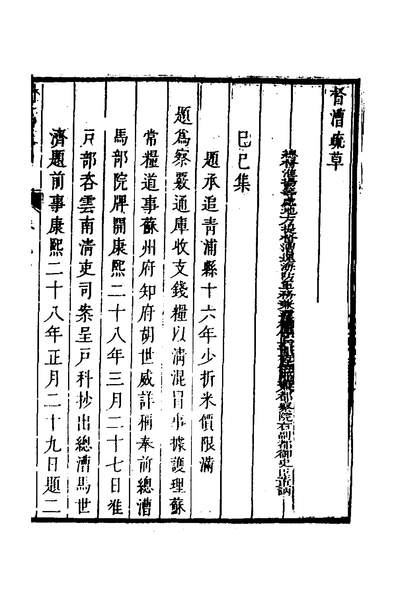 督漕疏草
總督淮揚等處地方提督漕運海防軍務兼
都察院右副都御史臣董訥
己巳集
題承追青浦縣十六年少折米價限滿
題爲察覈通庫收支錢糧以清混冒事據護理蘇
常糧道事蘇州府知府胡世威詳稱奉前總漕
馬部院牌開康熙二十八年三月二十七日准
戸部咨雲南清吏司案呈戸科抄出總漕馬世
濟題前事康熙二十八年正月二十九日題二